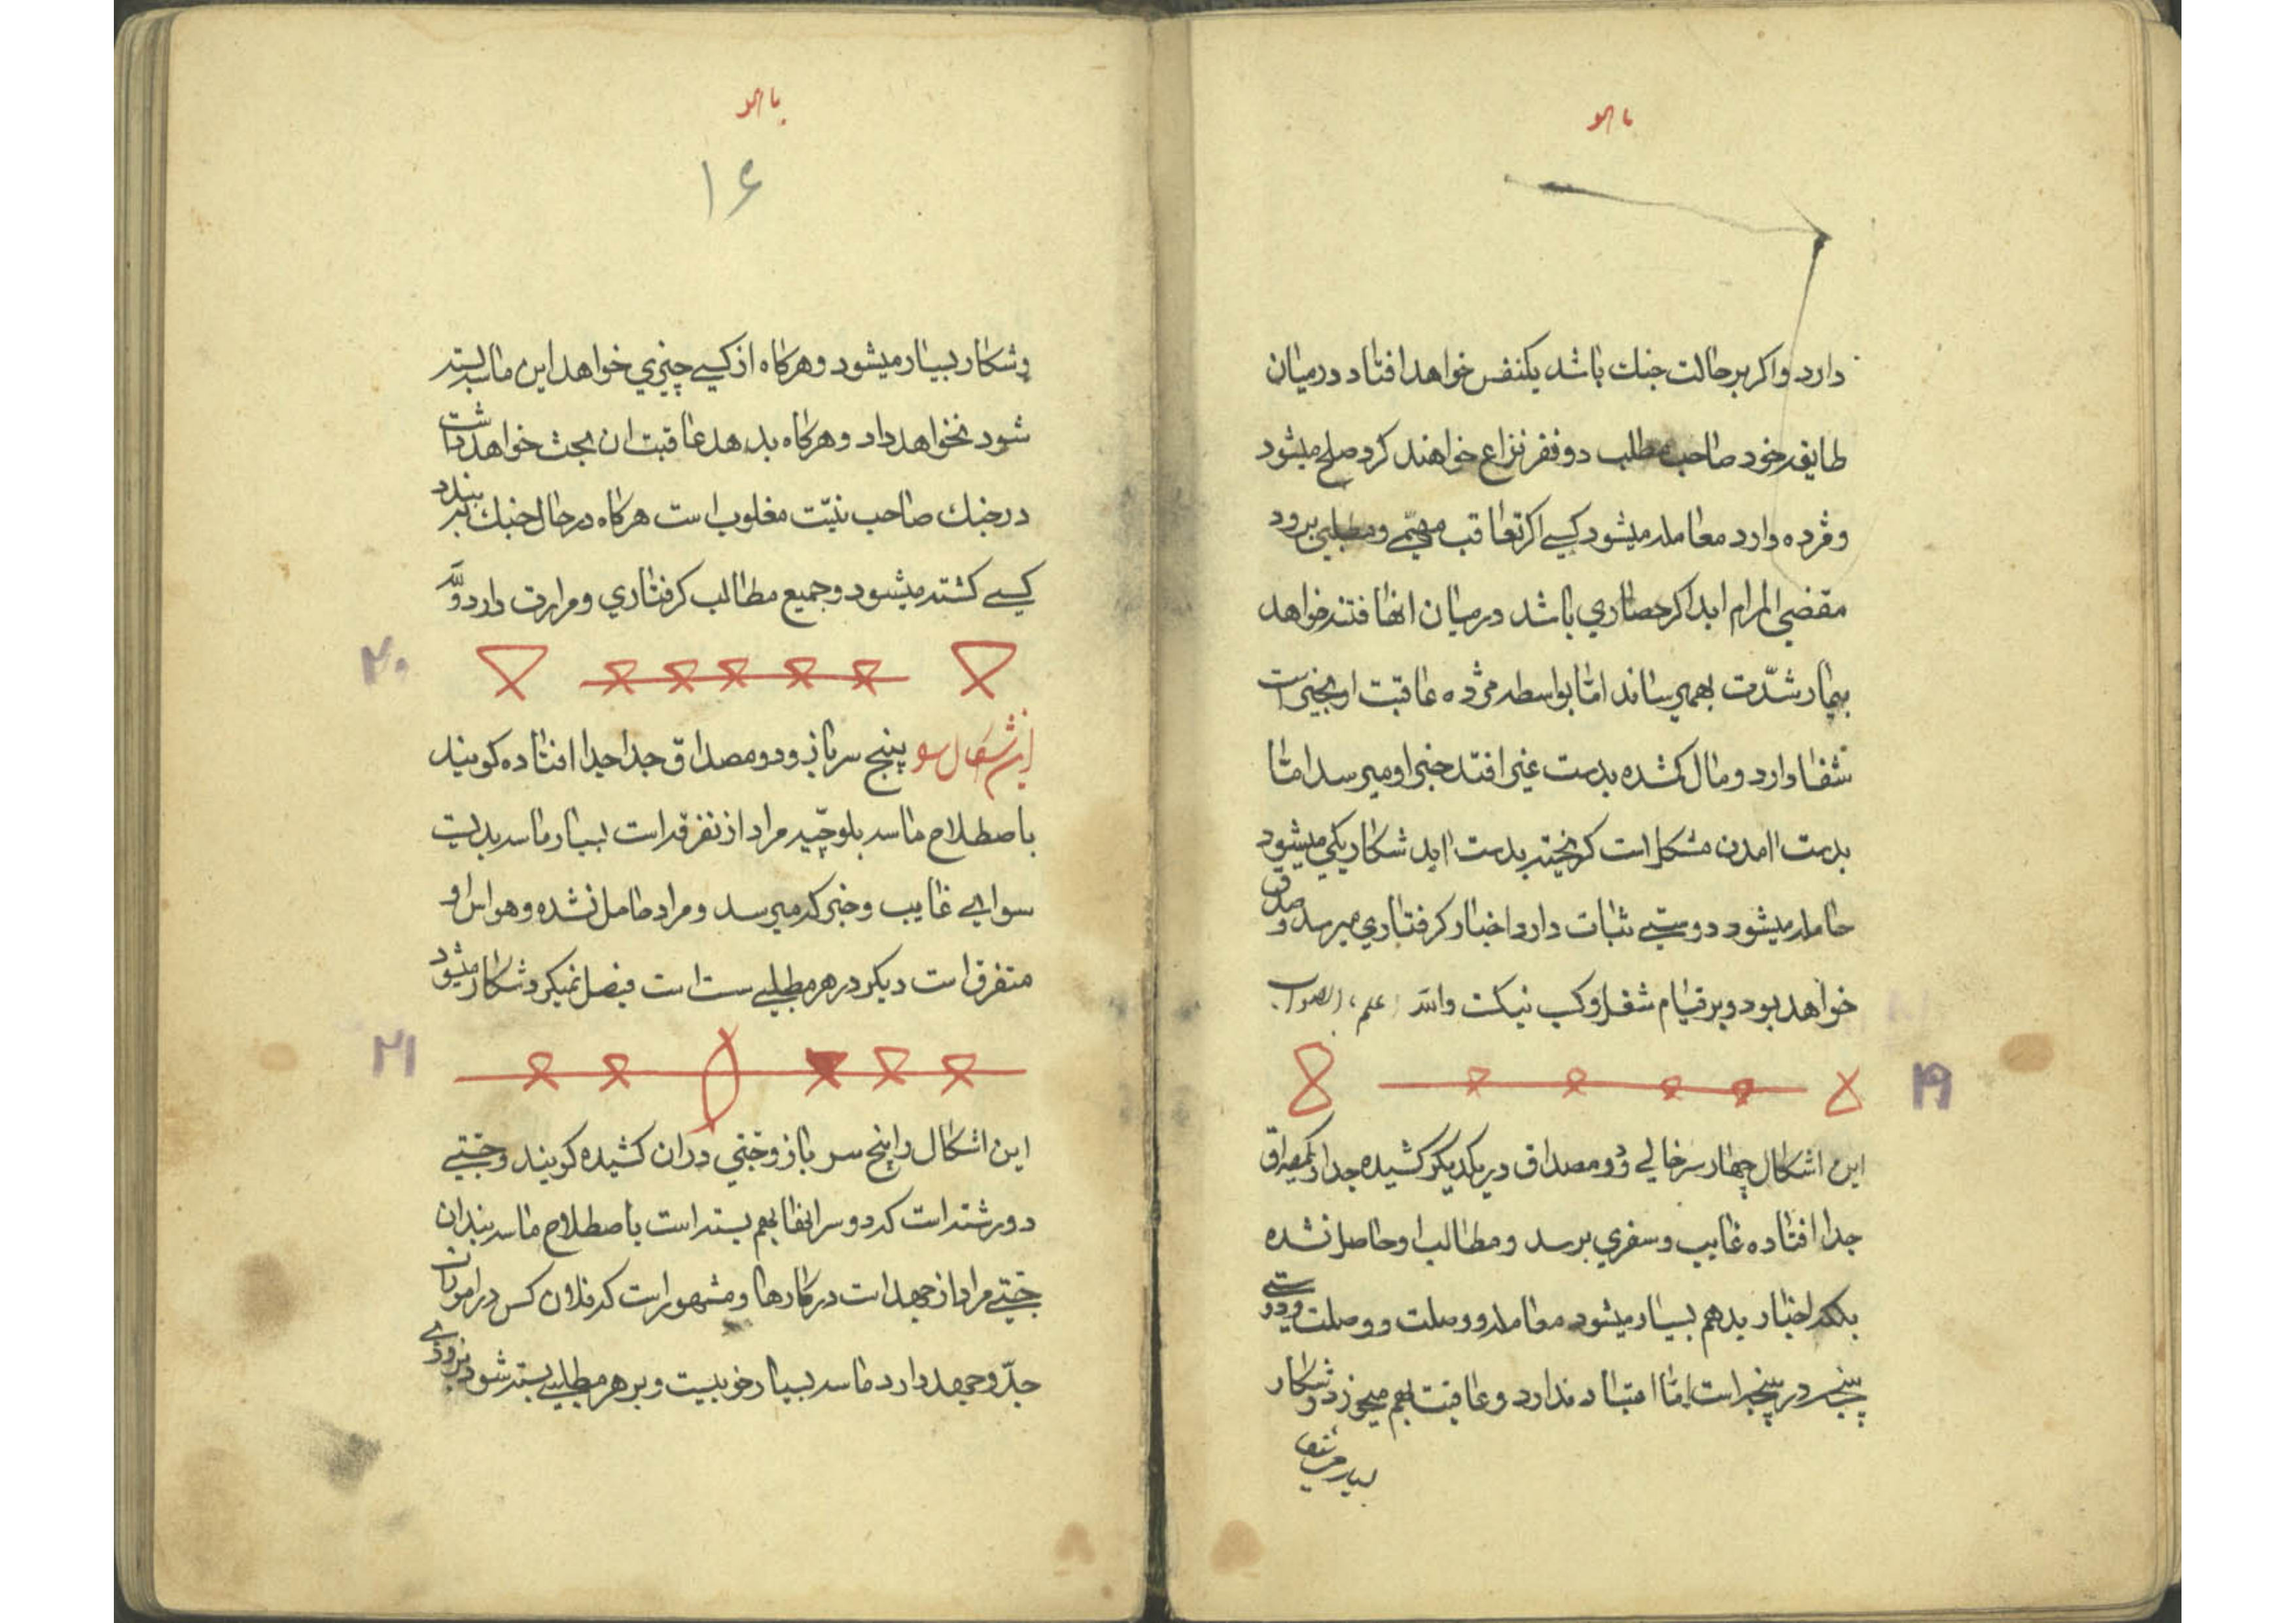 یا هو
دارد واکر بر حالت جنك باشد یکنفس خواهد افتاد درمیان
طایفه خود صاحب مطلب دو نفر نزاع خواهند کرد صلح میشود
ومژده دارد معامله میشود کسے اکر تعاقب مهمّے ومطلبی برود
مقضی المرام اید اکر حصاري باشد درمیان انها فتنه خواهد
بیمار شدّت بهم میرساند امّا بواسطه مژده عاقبت او بخیر است
شفا دارد ومال کمشده بدست غیر افتد خبر او میرسد امّا
بدست امدن مشکل است کریخته بدست اید شکار یکی میشود
حامله میشود دوستے ثبات دارد اخبار کرفتاري میرسد و صدق
خواهد بود وبر قیام شغل وکسب نیکست والله اعلم بالصواب
۱۹
این اشکال چهار سر خالے ودو مصداق در یکدیکر کشیده جدا ویکمصداق
جدا افتاده غایب وسفري برسد ومطالب او حاصل نشده
بلکه اخبار بد هم بسیار میشود معامله ووصلت ووصلت ودوستے
پنجه در پنجه است امّا اعتباد ندارد وعاقبت بهم میخورد وشکار
بسیار میشود
یا هو
۱۶
وشکار بسیار میشود وهرکاه از کسے چیزي خواهد این ماسه بسته
شود نخواهد داد وهرکاه بدهد عاقبت ان بحث خواهد داشت
درجنك صاحب نیّت مغلوب است هرکاه درحال جنك به بندد
کسے کشته میشود وجمیع مطالب کرفتاري ومرارت دارد
۲۰
این اشکال سو پنج سر باز ودو مصداق جدا جدا افتاده کویند
باصطلاح ماسه بلوچیّه مراد از تفرقه است بسیار ماسه بدیست
سوایے غایب وخبر که میرسد ومراد حاصل نشده وهواس او
متفرق است دیکر در هر مطلبے سست است فیصل نمیکرد شکار میشود
۲۱
این اشکال را پنج سر باز وختی دران کشیده کویند وختے
دورشته است که دو سر انها بهم بسته است باصطلاح ماسه بندان
ختے مراد از جهد است درکارها ومشهور است که فلان کس در امورات
جدّ وجهد دارد ماسه بسیار خوبیست وبر هر مطلبے بسته شود بزودے